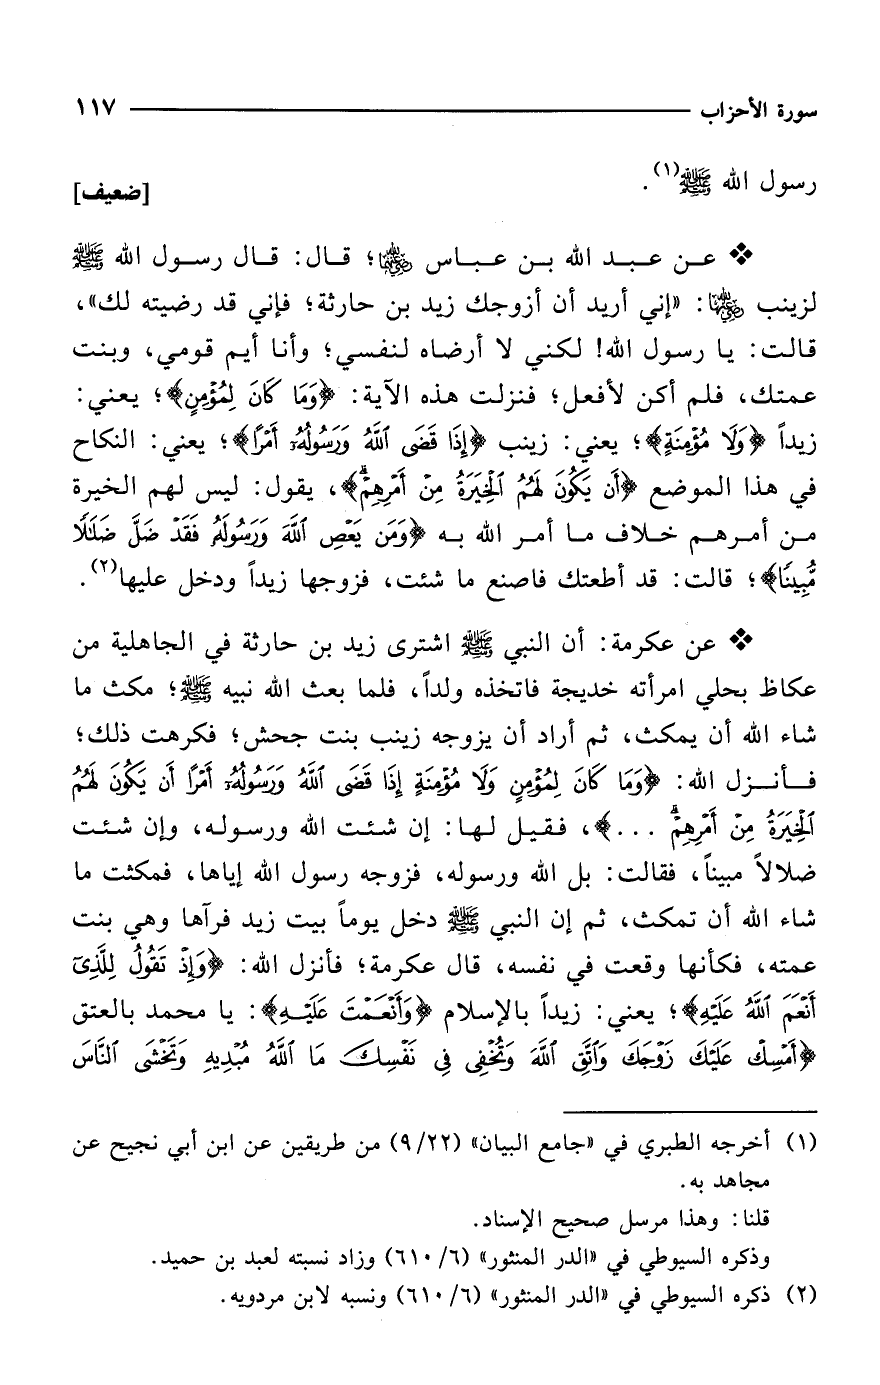 سورة الأحزاب ١١٧
رسول الله ﷺ(١). [ضعيف]
❖ عن عبد الله بن عباس رضي الله عنهما؛ قال: قال رسول الله ﷺ
لزينب رضي الله عنها: «إني أريد أن أزوجك زيد بن حارثة؛ فإني قد رضيته لك»،
قالت: يا رسول الله! لكني لا أرضاه لنفسي؛ وأنا أيم قومي، وبنت
عمتك، فلم أكن لأفعل؛ فنزلت هذه الآية: ﴿وَمَا كَانَ لِمُؤْمِنٍ﴾؛ يعني:
زيداً ﴿وَلَا مُؤْمِنَةٍ﴾؛ يعني: زينب ﴿إِذَا قَضَى ٱللَّهُ وَرَسُولُهُۥٓ أَمْرًا﴾؛ يعني: النكاح
في هذا الموضع ﴿أَن يَكُونَ لَهُمُ ٱلْخِيَرَةُ مِنْ أَمْرِهِمْ﴾، يقول: ليس لهم الخيرة
من أمرهم خلاف ما أمر الله به ﴿وَمَن يَعْصِ ٱللَّهَ وَرَسُولَهُۥ فَقَدْ ضَلَّ ضَلَٰلًا
مُّبِينًا﴾؛ قالت: قد أطعتك فاصنع ما شئت، فزوجها زيداً ودخل عليها(٢).
❖ عن عكرمة: أن النبي ﷺ اشترى زيد بن حارثة في الجاهلية من
عكاظ بحلي امرأته خديجة فاتخذه ولداً، فلما بعث الله نبيه ﷺ؛ مكث ما
شاء الله أن يمكث، ثم أراد أن يزوجه زينب بنت جحش؛ فكرهت ذلك؛
فأنزل الله: ﴿وَمَا كَانَ لِمُؤْمِنٍ وَلَا مُؤْمِنَةٍ إِذَا قَضَى ٱللَّهُ وَرَسُولُهُۥٓ أَمْرًا أَن يَكُونَ لَهُمُ
ٱلْخِيَرَةُ مِنْ أَمْرِهِمْ ...﴾، فقيل لها: إن شئت الله ورسوله، وإن شئت
ضلالاً مبيناً، فقالت: بل الله ورسوله، فزوجه رسول الله إياها، فمكثت ما
شاء الله أن تمكث، ثم إن النبي ﷺ دخل يوماً بيت زيد فرآها وهي بنت
عمته، فكأنها وقعت في نفسه، قال عكرمة؛ فأنزل الله: ﴿وَإِذْ تَقُولُ لِلَّذِىٓ
أَنْعَمَ ٱللَّهُ عَلَيْهِ﴾؛ يعني: زيداً بالإسلام ﴿وَأَنْعَمْتَ عَلَيْهِ﴾: يا محمد بالعتق
﴿أَمْسِكْ عَلَيْكَ زَوْجَكَ وَٱتَّقِ ٱللَّهَ وَتُخْفِى فِى نَفْسِكَ مَا ٱللَّهُ مُبْدِيهِ وَتَخْشَى ٱلنَّاسَ
(١) أخرجه الطبري في «جامع البيان» (٩/٢٢) من طريقين عن ابن أبي نجيح عن
مجاهد به.
قلنا: وهذا مرسل صحيح الإسناد.
وذكره السيوطي في «الدر المنثور» (٦١٠/٦) وزاد نسبته لعبد بن حميد.
(٢) ذكره السيوطي في «الدر المنثور» (٦١٠/٦) ونسبه لابن مردويه.